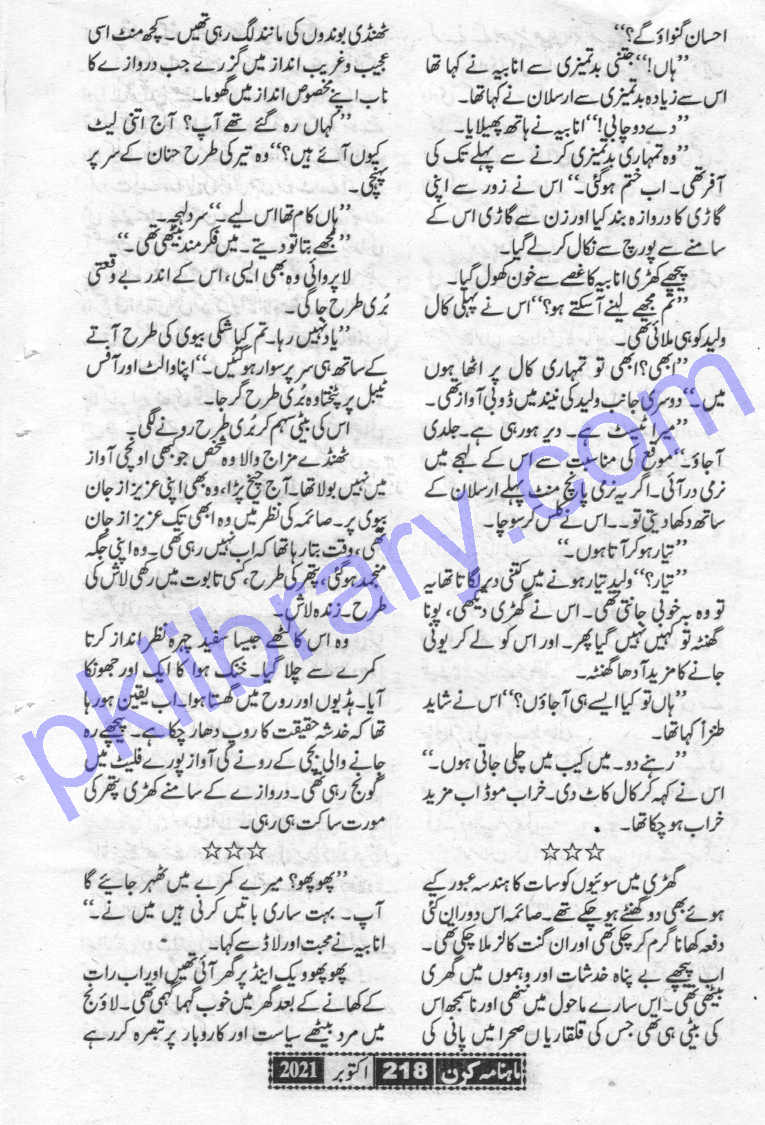 احسان گنواؤ گے؟“
”ہاں!“ جتنی بدتمیزی سے انابیہ نے کہا تھا
اس سے زیادہ بدتمیزی سے ارسلان نے کہا تھا۔
”دے دو چابی!“ انابیہ نے ہاتھ پھیلایا۔
”وہ تمہاری بدتمیزی کرنے سے پہلے تک کی
آفر تھی۔ اب ختم ہو گئی۔“ اس نے زور سے اپنی
گاڑی کا دروازہ بند کیا اور زن سے گاڑی اس کے
سامنے سے پورچ سے نکال کر لے گیا۔
پیچھے کھڑی انابیہ کا غصے سے خون کھول گیا۔
”تم مجھے لینے آ سکتے ہو؟“ اس نے پہلی کال
ولید کو ہی ملائی تھی۔
”ابھی؟ ابھی تو تمہاری کال پر اٹھا ہوں
میں۔“ دوسری جانب ولید کی نیند میں ڈوبی آواز تھی۔
”میرا ٹیسٹ ہے۔ دیر ہو رہی ہے۔ جلدی
آ جاؤ۔“ موقع کی مناسبت سے اس کے لہجے میں
نرمی در آئی۔ اگر یہ نرمی پانچ منٹ پہلے ارسلان کے
ساتھ دکھا دیتی تو۔۔ اس نے کر سوچا۔
”تیار ہو کر آتا ہوں۔“
”تیار؟“ ولید تیار ہونے میں کتنی دیر لگاتا تھا یہ
تو وہ بہ خوبی جانتی تھی۔ اس نے گھڑی دیکھی، پونا
گھنٹہ تو کہیں نہیں گیا پھر۔ اور اس کو لے کر یونی
جانے کا مزید آدھا گھنٹہ۔
”ہاں تو کیا ایسے ہی آ جاؤں؟“ اس نے شاید
طنزاً کہا تھا۔
”رہنے دو۔ میں کیب میں چلی جاتی ہوں۔“
اس نے کہہ کر کال کاٹ دی۔ خراب موڈ اب مزید
خراب ہو چکا تھا۔
☆☆☆
گھڑی میں سوئیوں کو سات کا ہندسہ عبور کیے
ہوئے بھی دو گھنٹے ہو چکے تھے۔ صائمہ اس دوران کئی
دفعہ کھانا گرم کر چکی تھی اور ان گنت کالز ملا چکی تھی۔
اب پیچھے بے پناہ خدشات اور وہموں میں گھری
بیٹھی تھی۔ اس سارے ماحول میں ننھی اور ناسمجھ اس
کی بیٹی ہی تھی جس کی قلقاریاں صحرا میں پانی کی
ٹھنڈی بوندوں کی مانند لگ رہی تھیں۔ کچھ منٹ اسی
عجیب و غریب انداز میں گزرے جب دروازے کا
ناب اپنے مخصوص انداز میں گھوما۔
”کہاں رہ گئے تھے آپ؟ آج اتنی لیٹ
کیوں آئے ہیں؟“ وہ تیر کی طرح حنان کے سر پر
پہنچی۔
”ہاں کام تھا اس لیے۔“ سرد لہجہ۔
”مجھے بتا تو دیتے۔ میں فکر مند بیٹھی تھی۔“
لا پروائی وہ بھی ایسی، اس کے اندر بے وقعتی
بُری طرح جاگی۔
”یاد نہیں رہا۔ تم کیا شکی بیوی کی طرح آتے
کے ساتھ ہی سر پر سوار ہو گئیں۔“ اپنا والٹ اور آفس
ٹیبل پر پٹختا وہ بُری طرح گرجا۔
اس کی بیٹی سہم کر بُری طرح رونے لگی۔
ٹھنڈے مزاج والا وہ شخص جو کبھی اونچی آواز
میں نہیں بولا تھا۔ آج چیخ پڑا، وہ بھی اپنی عزیز از جان
بیوی پر۔ صائمہ کی نظر میں وہ ابھی تک عزیز از جان
تھی، وقت بتا رہا تھا کہ اب نہیں رہی تھی۔ وہ اپنی جگہ
منجمد ہو گئی، پتھر کی طرح، کسی تابوت میں رکھی لاش کی
طرح۔ زندہ لاش۔
وہ اس کا لٹھے جیسا سفید چہرہ نظر انداز کرتا
کمرے سے چلا گیا۔ خنک ہوا کا ایک اور جھونکا
آیا۔ ہڈیوں اور روح میں گھستا ہوا۔ اب یقین ہو رہا
تھا کہ خدشہ حقیقت کا روپ دھار چکا ہے۔ پیچھے رہ
جانے والی بچی کے رونے کی آواز پورے فلیٹ میں
گونج رہی تھی۔ دروازے کے سامنے کھڑی پتھر کی
مورت ساکت ہی رہی۔
☆☆☆
”پھوپھو؟ میرے کمرے میں ٹھہر جائیے گا
آپ۔ بہت ساری باتیں کرنی ہیں میں نے۔“
انابیہ نے محبت اور لاڈ سے کہا۔
پھوپھو ویک اینڈ پر گھر آئی تھیں اور اب رات
کے کھانے کے بعد گھر میں خوب گہما گہمی تھی۔ لاؤنج
میں مرد بیٹھے سیاست اور کاروبار پر تبصرہ کر رہے
ماہنامہ کرن 218 اکتوبر 2021
pklibrary.com